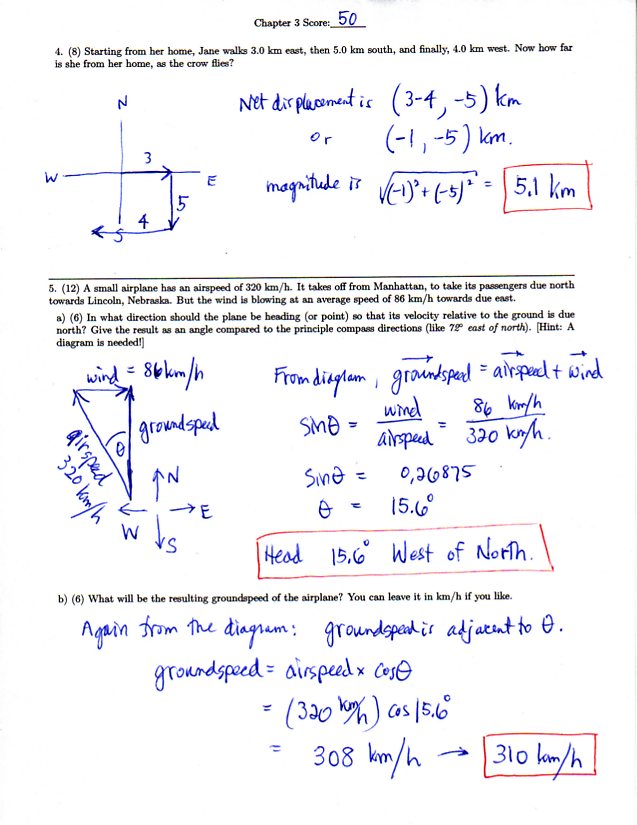 Chapter 3 Score: 50
4. (8) Starting from her home, Jane walks 3.0 km east, then 5.0 km south, and finally, 4.0 km west. Now how far
is she from her home, as the crow flies?
N
W
E
S
3
5
4
Net displacement is (3-4, -5) km
or (-1, -5) km.
magnitude is √(-1)² + (-5)² = 5.1 km
5. (12) A small airplane has an airspeed of 320 km/h. It takes off from Manhattan, to take its passengers due north
towards Lincoln, Nebraska. But the wind is blowing at an average speed of 86 km/h towards due east.
a) (6) In what direction should the plane be heading (or point) so that its velocity relative to the ground is due
north? Give the result as an angle compared to the principle compass directions (like 72° east of north). [Hint: A
diagram is needed!]
wind = 86 km/h
groundspeed
airspeed
320 km/h
θ
N
E
W
S
From diagram, groundspeed = airspeed + wind
sinθ = wind/airspeed = 86 km/h / 320 km/h.
sinθ = 0.26875
θ = 15.6°
Head 15.6° West of North.
b) (6) What will be the resulting groundspeed of the airplane? You can leave it in km/h if you like.
Again from the diagram: groundspeed is adjacent to θ.
groundspeed = airspeed x cosθ
= (320 km/h) cos 15.6°
= 308 km/h → 310 km/h